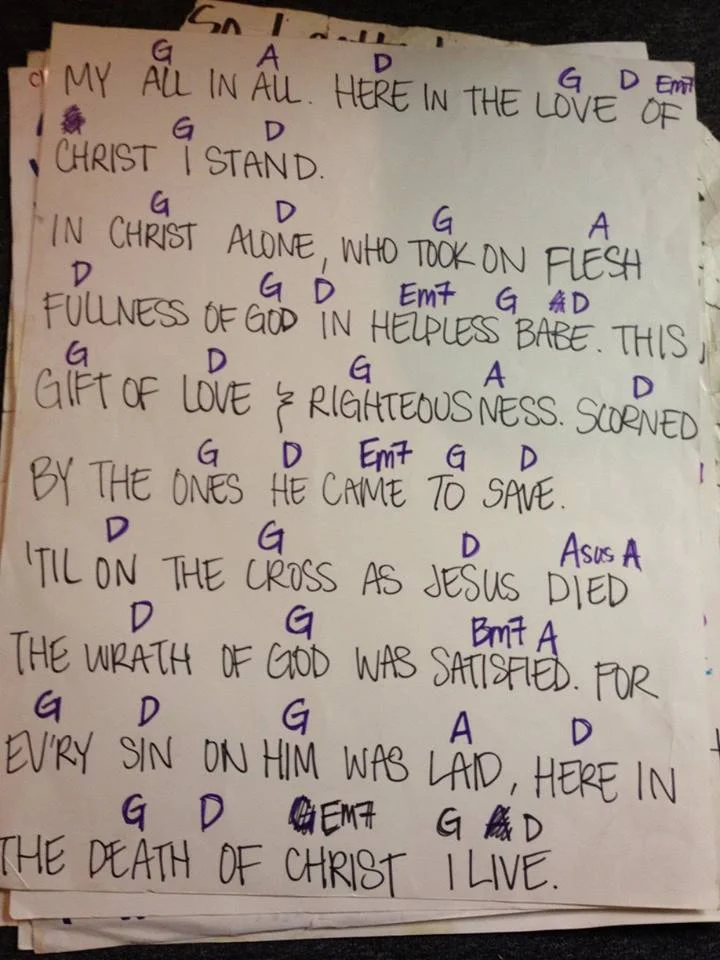 G A D G D Em7
MY ALL IN ALL. HERE IN THE LOVE OF
G D
CHRIST I STAND.
G D G A
IN CHRIST ALONE, WHO TOOK ON FLESH
D G D Em7 G D
FULLNESS OF GOD IN HELPLESS BABE. THIS
G D G A D
GIFT OF LOVE & RIGHTEOUSNESS. SCORNED
G D Em7 G D
BY THE ONES HE CAME TO SAVE.
D G D Asus A
'TIL ON THE CROSS AS JESUS DIED
D G Bm7 A
THE WRATH OF GOD WAS SATISFIED. FOR
G D G A D
EV'RY SIN ON HIM WAS LAID, HERE IN
G D EM7 G D
THE DEATH OF CHRIST I LIVE.